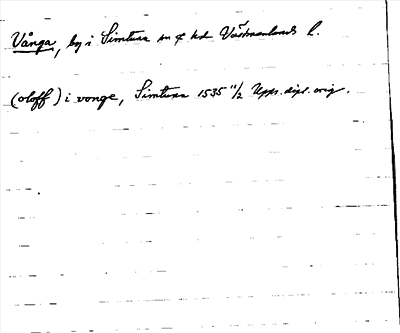 Vånga, by i Simtuna sn o hd Västmanlands l.
(oloff) i vonge, Simtuna 1535 11/2 Upps. dipl. orig.